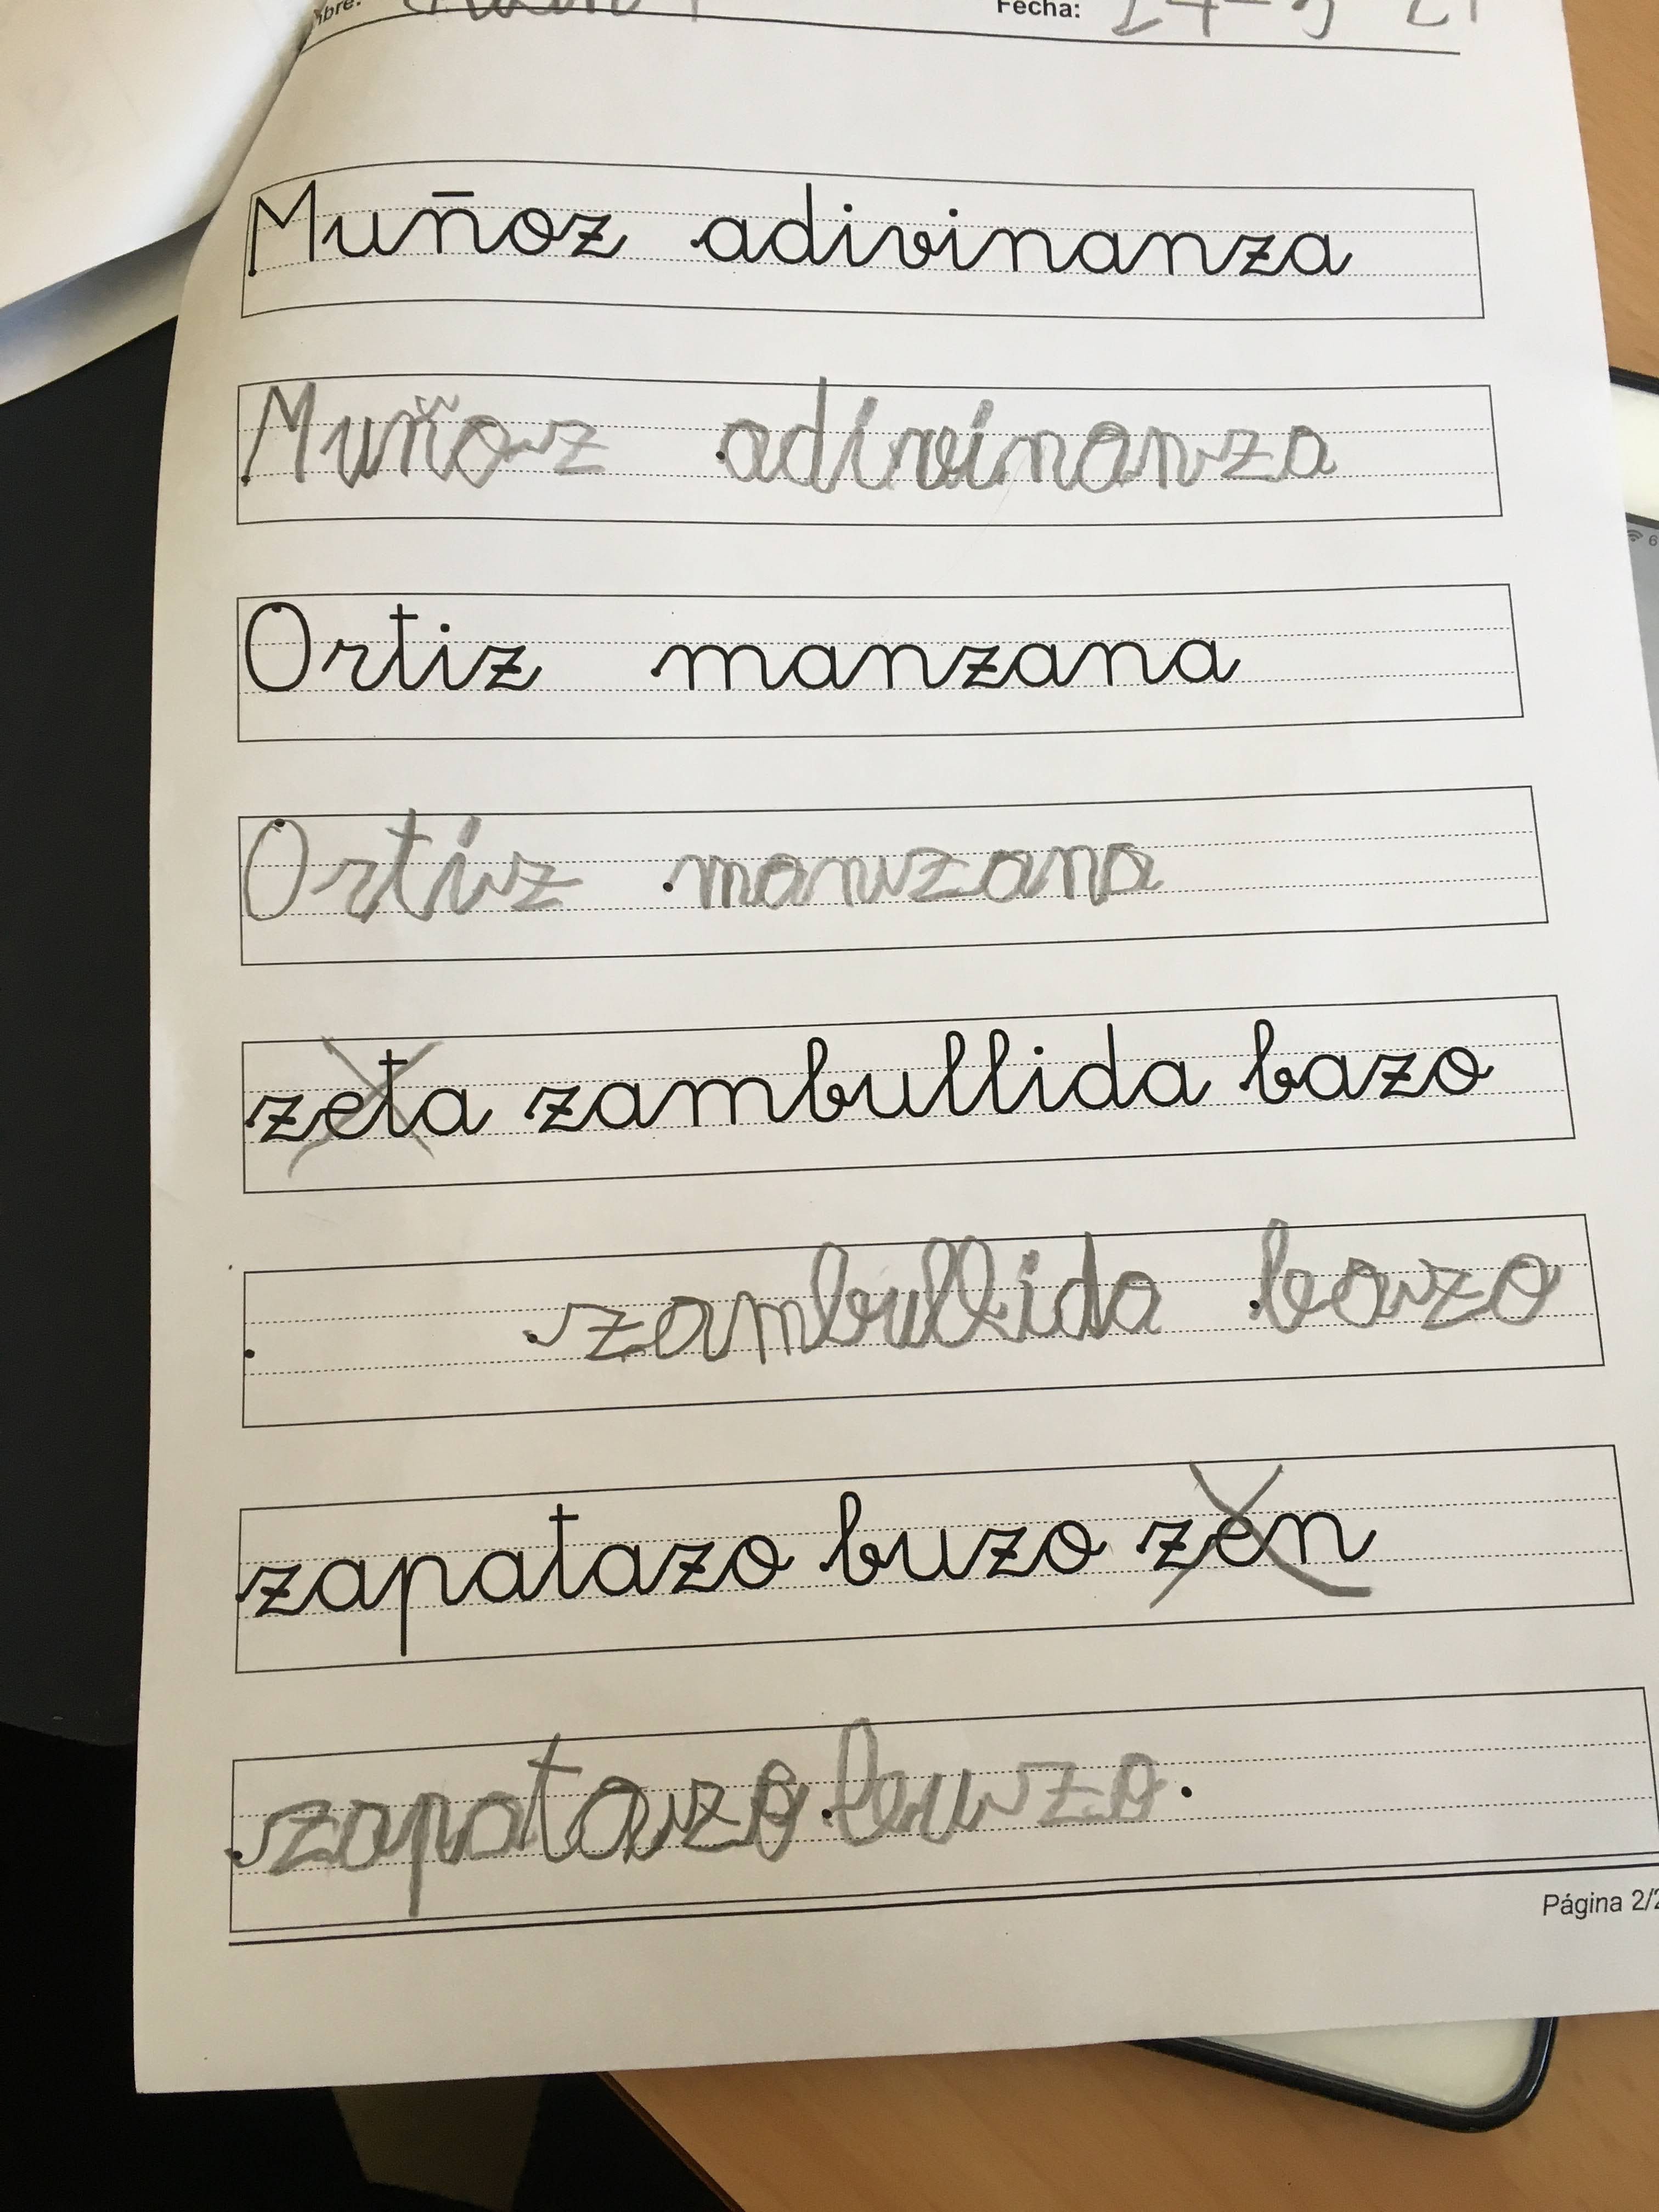 Fecha:
Muñoz adivinanza
Muñoz adivinanza
Ortiz manzana
Ortiz manzana
zeta zambullida bazo
zambullida bazo
zapatazo buzo zen
zapatazo buzo
Página 2/2